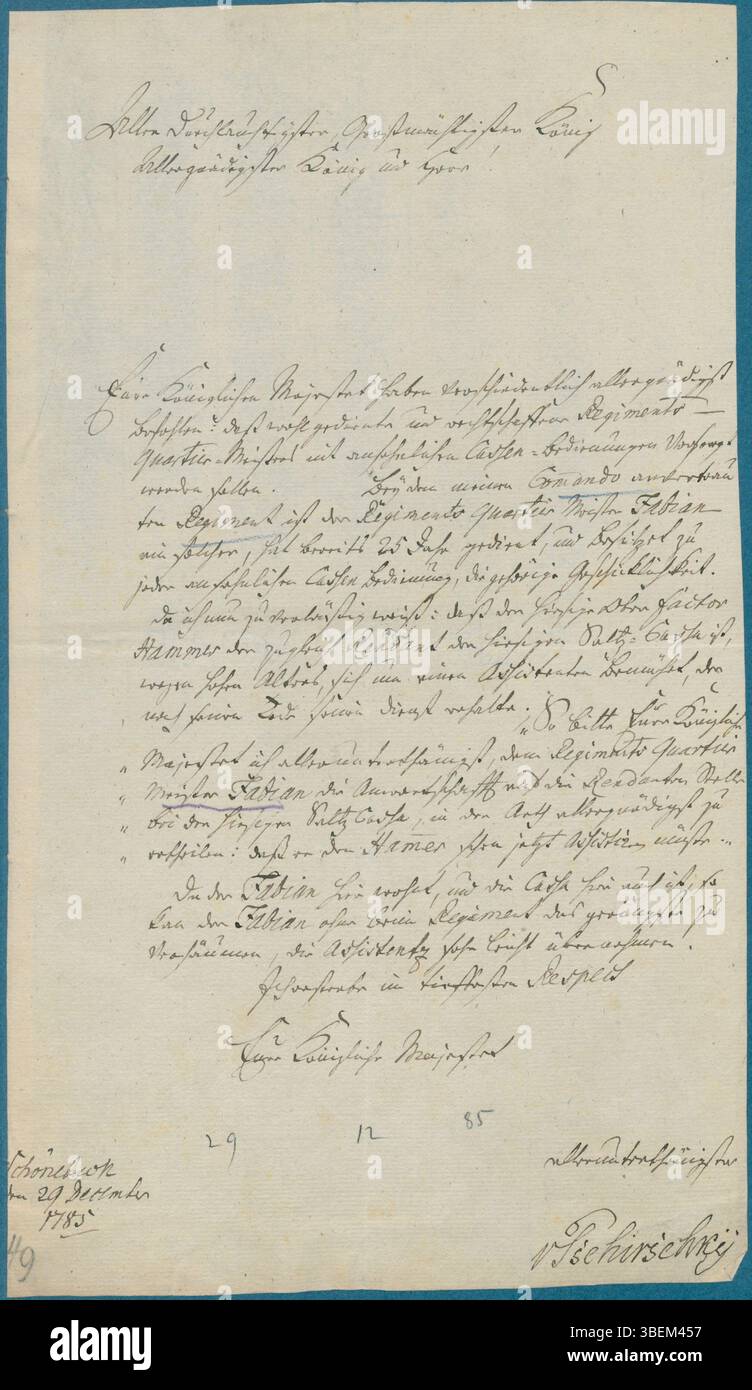 Aller Durchlauchtigster, Großmächtigster König
Allergnädigster König und Herr!
Eure Königlichen Majestet haben verschiedentlich allergnädigst
befohlen: daß wohl gediente und rechtschaffene Regiments-
Quartier-Meisters mit ansehnlichen Cassen-bedienungen Versorgt
werden sollen. Bey dem meinen Comando anvertrau
ten Regiment ist der Regiments Quartier Meister Fabian
ein solcher, hat bereits 25 Jahr gedient, und besitzet zu
jeder ansehnlichen Cassen bedienung, die gehörige Geschicklichkeit.
Da ich nun zuverläßig weiß: daß der hiesige Ober Factor
Hammer der zugleich Rendant der hiesigen Saltz-Cassa ist,
wegen hohen Alters, sich um einen Assistenten bemühet, der
nach seinen Tode seinen dienst erhalte. So bitte Eure Königliche
" Majestet ich alleruntertähnigst, dem Regiments Quartier
" Meister Fabian die Anwartschafft auf die Rendanten Stelle
" bei der hiesigen Saltz Cassa, in der Arth allergnädigst zu
" ertheilen: daß er den Hamer schon jetzt Assistiren müste.
Da der Fabian hier wohnt, und die Cassa hier auch ist, so
kan der Fabian ohne beim Regiment das geringste zu
versäumen, die Assistentz sehr leicht übernehmen.
Ich ersterbe im tieffesten Respect
Eure Königliche Majestet
29 12 85
allerunterthänigster
Schönebeck
den 29 December
1785
vTschirschky
49
alamy
Image ID: 3BEM457
www.alamy.com